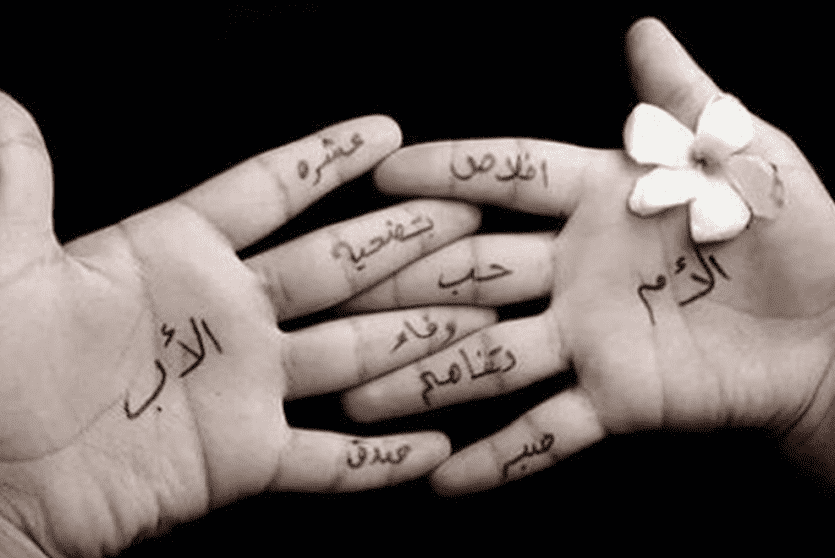 عشره
اخلاص
بتضحية
حب
الأم
وفاء
الأب
وتفاهم
صدق
صبر